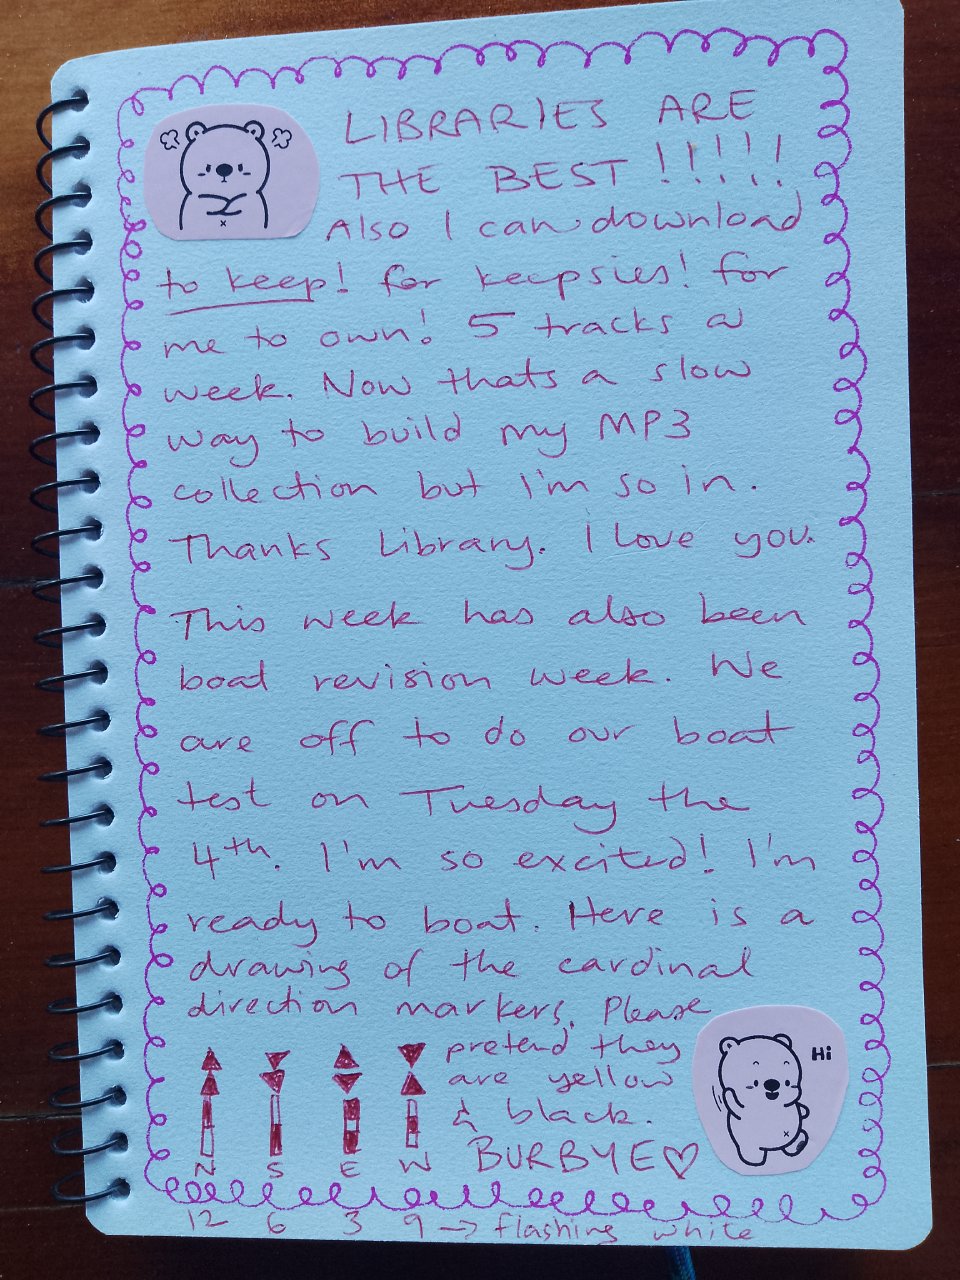 LIBRARIES ARE
THE BEST !!!!!
Also I can download
to keep! for keepsies! for
me to own! 5 tracks a
week. Now thats a slow
way to build my MP3
collection but I'm so in.
Thanks Library. I love you.
This week has also been
boat revision week. We
are off to do our boat
test on Tuesday the
4th. I'm so excited! I'm
ready to boat. Here is a
drawing of the cardinal
direction markers. Please
pretend they
are yellow
& black.
Hi
BURBYE♡
N S E W
12 6 3 9 → flashing white